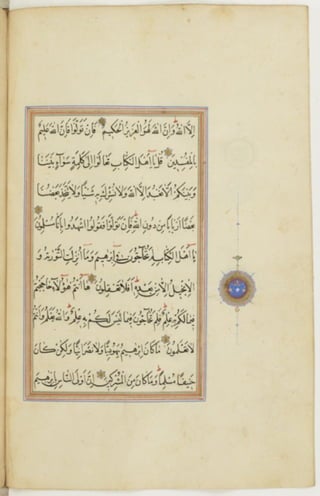 الا الله وان الله لهو العزيز الحكيم فان تولوا فان الله عليم
بالمفسدين قل يا اهل الكتاب تعالوا الى كلمة سواء بيننا
وبينكم الا نعبد الا الله ولا نشرك به شيئا ولا يتخذ بعضنا
بعضا اربابا من دون الله فان تولوا فقولوا اشهدوا بانا مسلمون
يا اهل الكتاب لم تحاجون في ابرهيم وما انزلت التورية و
الانجيل الا من بعده افلا تعقلون ها انتم هؤلاء حاججتم
فيما لكم به علم فلم تحاجون فيما ليس لكم به علم والله يعلم وانتم
لا تعلمون ما كان ابرهيم يهوديا ولا نصرانيا ولكن كان
حنيفا مسلما وما كان من المشركين ان اولى الناس بابرهيم